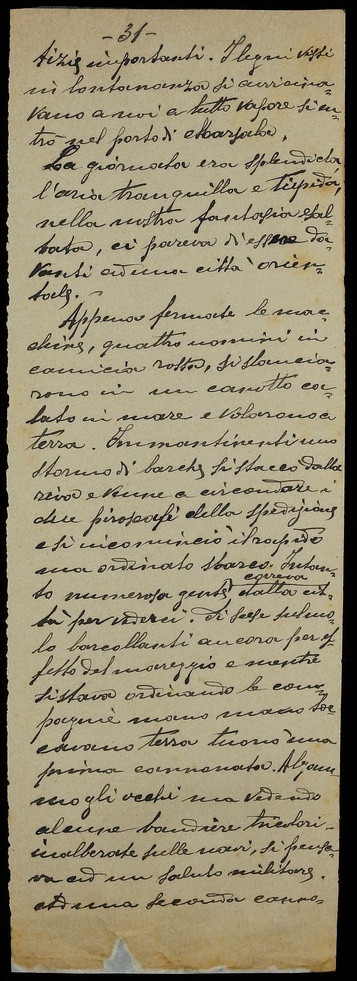 - 31 -
tizie importanti. I legni visti
in lontananza si avvicina-
vano a noi a tutto vapore si en-
trò nel porto di Marsala.
La giornata era splendida,
l'aria tranquilla e tiepida,
nella nostra fantasia esal-
tata, ci pareva di essere da-
vanti ad una città orien-
tale. -
Appena fermate le mac-
chine, quattro uomini in
camicia rossa, si slancia-
rono in un canotto ca-
lato in mare e volarono a
terra. Immantinenti uno
stormo di barche si staccò dalla
riva e venne a circondare i
due piroscafi della spedizione
e si incominciò il rapido
ma ordinato sbarco. Intan-
to numerosa gente correva dalla cit-
tà per vederci. Si scese sul mo-
lo barcollanti ancora per ef-
fetto del mareggio e mentre
si stava ordinando le com-
pagnie mano mano toc-
cavano terra tuonò una
prima cannonata. Alzam-
mo gli occhi ma vedendo
alcune bandiere tricolori
inalberate sulle navi, si pensa-
va ad un saluto militare.
Ad una seconda canno-